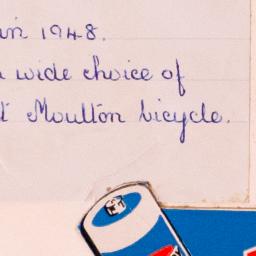 in 1948.
wide choice of
Moulton bicycle.